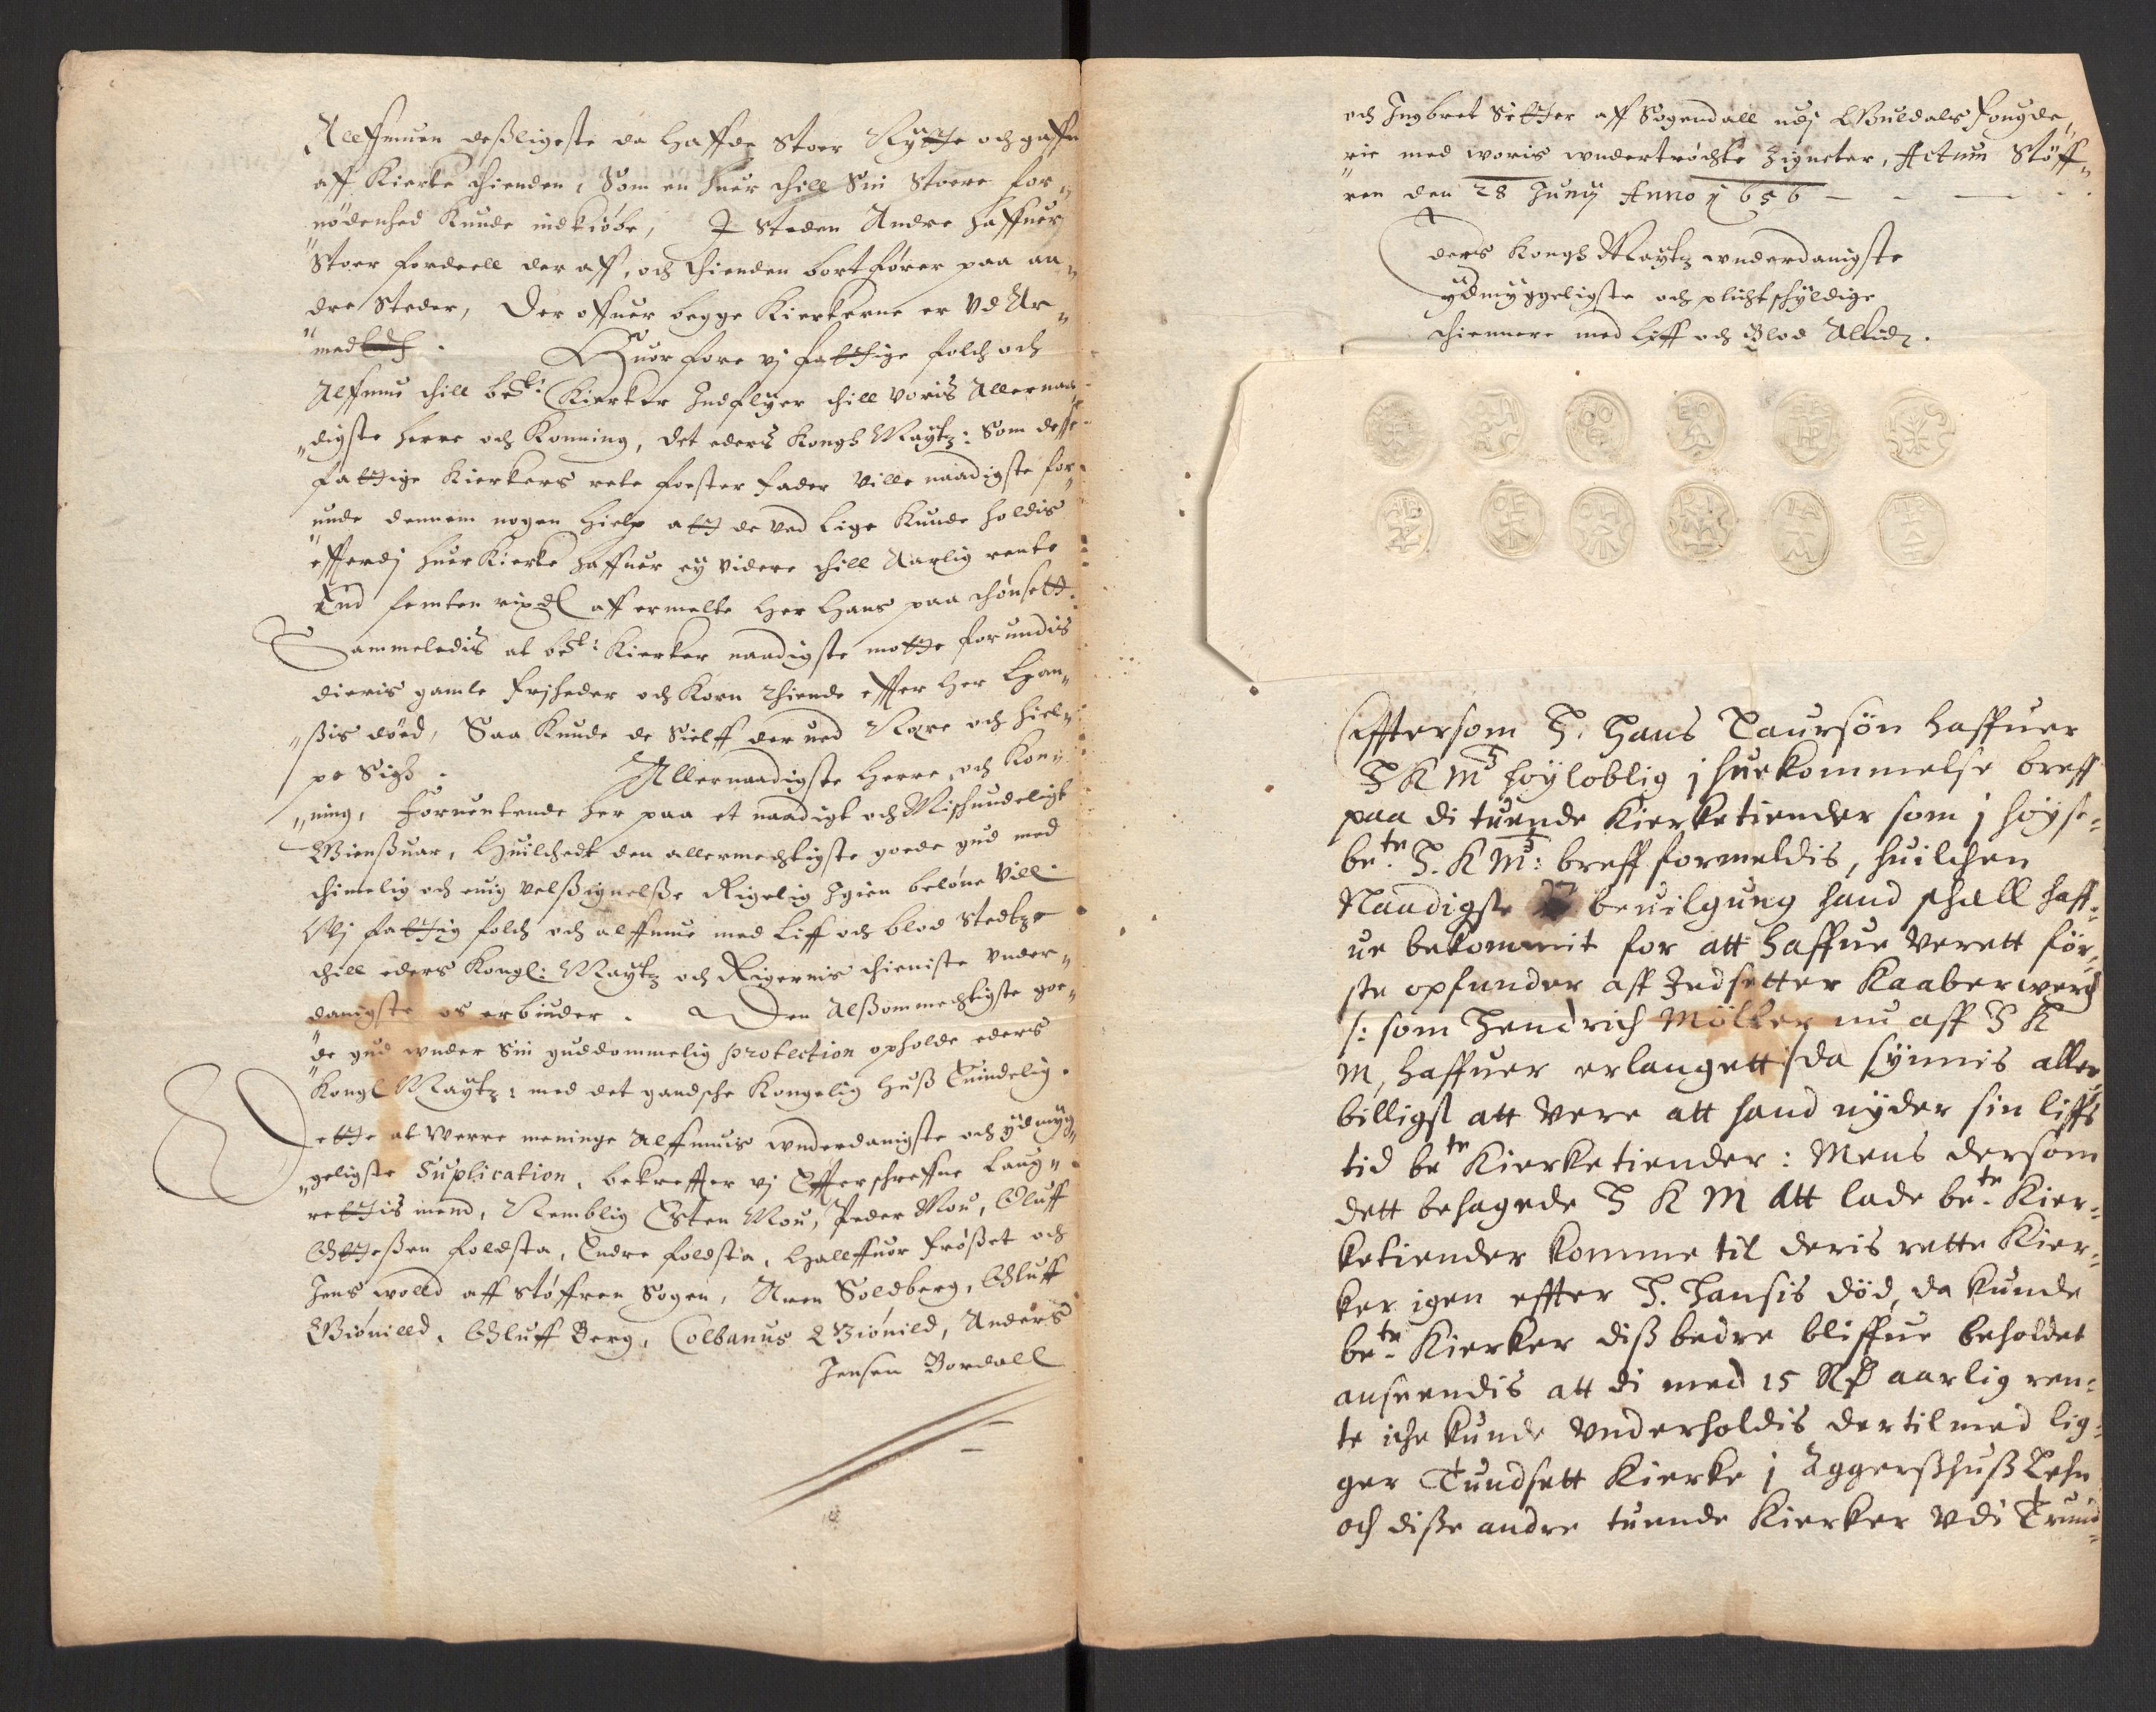 Allffmuen desligeste da haffde stoer Nytte och gaffn
aff Kierke thienden, Som en huer thill Sin stoere for„
„nödenhed Kunde indkiöbe, J Steden Andre haffuer
Stoer fordeell der aff, och thienden bortförer paa an„
dre Steder, Der offuer begge Kierkerne er Ud Ar„
„med
Huor fore vj fattige folch och
Alffmu thill bete: Kierker Indflyer thill voris Allernaa„
„digste herre och Konning, det eders Kongl Maytz: Som desse
fattige Kierkers rete foster fader ville naadigste for„
„unde dennem nogen hielp att de ved lige Kunde holdis
efferdj huer Kierke haffuer ey videre thill Aarlig rente
End femten rixdl aff ermelte Her Hans paa thönsett.
Sammeledis at bete: Kierker naadigste motte forundis
dieris gamle friheder och Korn thiende effter Her Han„
„ßis död, Saa Kunde de Sielff der ved Være och hiel„
pe Sigh. Allernaadigste Herre och Kon„
„ning, Foruentende her paa et naadigt och Mischundeligt
Giensuar, Huilchedt den allermechtigste goede gud med
thimelig och euig velsignelse Rigelig Igien belöne vill.
Vj fattig folch och alffmue med Liff och blod stedtze
thill eders Kongl: Maytz och Rigernis thieniste vnder„
danigste os erbiuder. Den Alsommechtigste goe„
„de gud vnder Sin guddommelig protection opholde eders
Kongl Maytz: med det gandsche Kongelig Huß Euindelig.
Dette at Werre meninge Alffmuis vnderdanigste och ydmyg„
„geligste Suplication, bekreffter vj Effterschreffne Laug„
rettis mend, Nemblig Esten Mou, Peder Mou, Oluff
foldsta, Endre foldsta, Hallffuor fröset och
Jens wolld aff Stöffren Sogen, Aren Soldberg, Oluff
Giönilld, Oluff Berg, Colbanus Giönild, Anders
Jensen Bordall
och Ingbret Sitter aff Sogendall udj Guldals fougde„
„rie med woris wndertröchte Zigneter, Actum Stöff„
ren den 28 Junij Anno 1656
Eders Kongl Maytz wnderdanigste
ydmyggeligste och plichtschyldige
thiennere med Liff och Blod Altid.
Efftersom H. Hans Taursön haffuer
H K Mts höyloblig ihuekommelse breff
paa di tuende Kierketiender som i höyst-
bete H. K Mts: breff formeldis, huilchen
Naadigste beuilgung hand schall haff-
ue bekommit for att haffue verett för-
ste opfunder aff Indsetter Kaaberwerch
/: som Hendrich Möller nu aff H K
M, haffuer erlangett :/ da synnis aller
billigst att vere att hand nyder sin liffs
tid bete Kierketiender: Mens dersom
dett behagede H K M Att lade bete Kier-
ketiender komme til deris rette Kier-
ker igen effter H. Hansis död, da kunde
bete Kierker diß bedre bliffue beholdet
anseendis att di med 15 Rd aarlig ren-
te iche kunde Vnderholdis dertilmed lig-
ger Tundsett Kierke i Aggerßhuß Lehn
och diße andre tuende Kierker Vdi Trund-